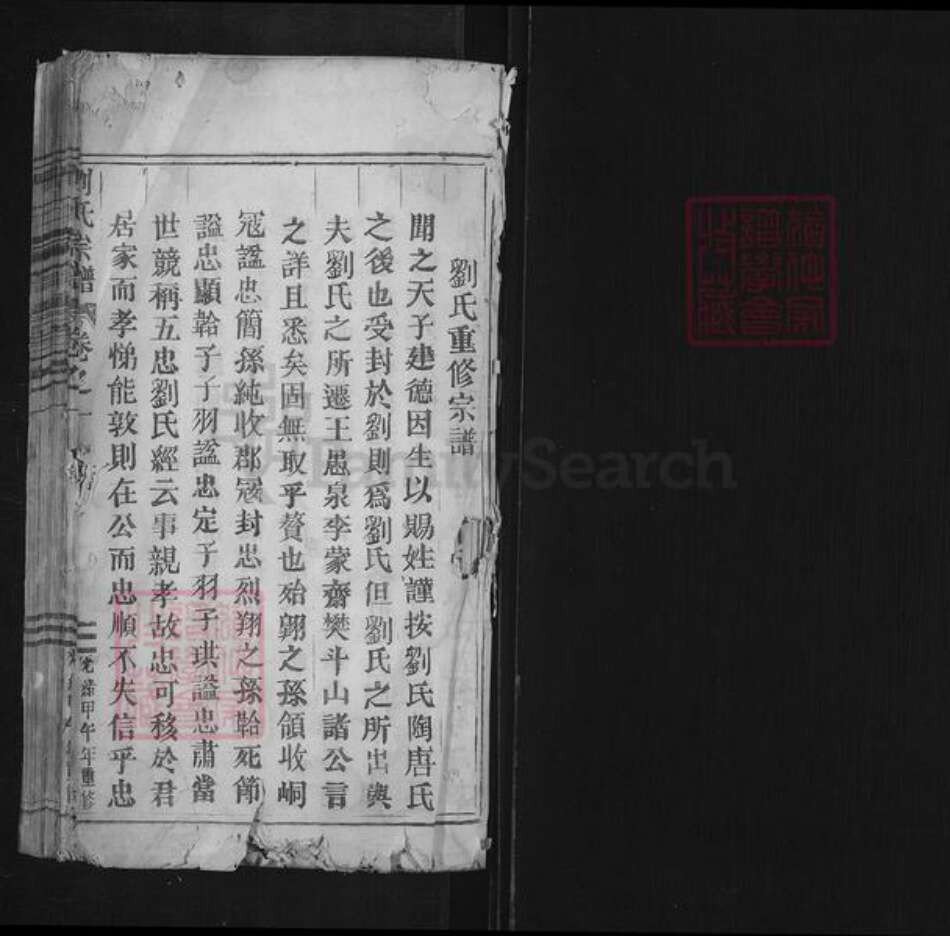 劉氏重修宗譜
聞之天子建德因生以賜姓謹按劉氏陶唐氏
之後也受封於劉則為劉氏但劉氏之所出與
夫劉氏之所遷王愚泉李蒙齋樊斗山諸公言
之詳且悉矣固無取乎贅也殆翱之孫領收峒
冦諡忠簡孫純收郡冦封忠烈翔之孫韐死節
諡忠顯韐子子羽諡忠定子羽子珙諡忠肅當
世競稱五忠劉氏經云事親孝故忠可移於君
居家而孝悌能敦則在公而忠順不失信乎忠
劉氏宗譜 卷之一
光緒甲午年重修
FamilySearch